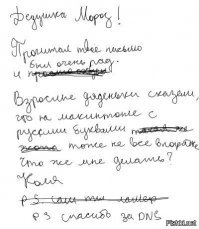 Дедушка Мороз!
Прочитал твое письмо
был очень рад.
и
Взрослые дяденьки сказали,
что на макинтоше с
русскими буквами
тоже не все впорядке
Что же мне делать?
Коля
P S сам ты ламер
P S спасибо за DNS